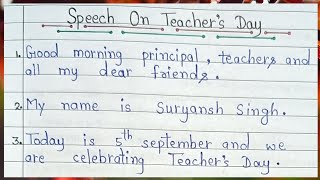 Speech On Teacher's Day
1. Good morning principal, teachers and
all my dear friends.
2. My name is Suryansh Singh.
3. Today is 5th september and we
are celebrating Teacher's Day.